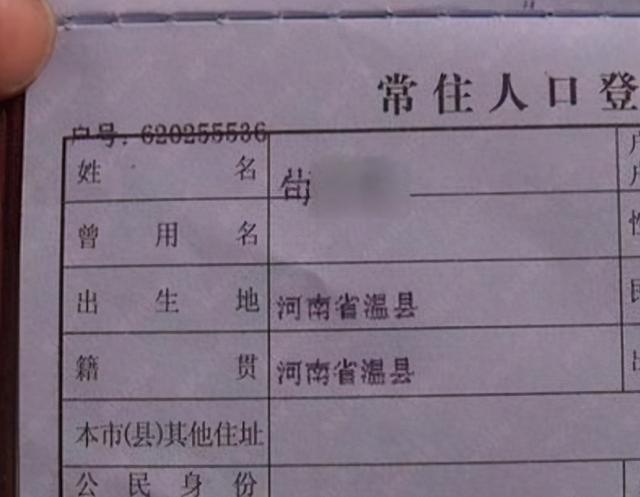 常住人口登
户号：620255536
姓名
曾用名
出生地 河南省温县
籍贯 河南省温县
本市(县)其他住址
公民身份